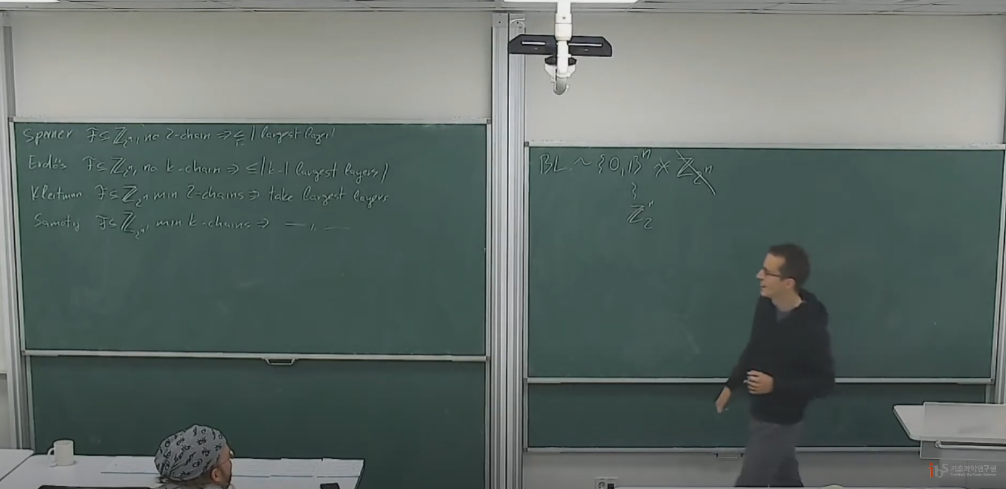 Sperner F ⊆ ℤ_2^n, no 2-chain ⇒ ≤ | largest layer |
Erdős F ⊆ ℤ_2^n, no k-chain ⇒ ≤ | k-1 largest layers |
Kleitman F ⊆ ℤ_2^n min 2-chains ⇒ take largest layers
Samotij F ⊆ ℤ_2^n, min k-chains ⇒ —〃—
BL ~ {0,1}^n × ℤ_2^n
ℤ_2^n
ibS 기초과학연구원